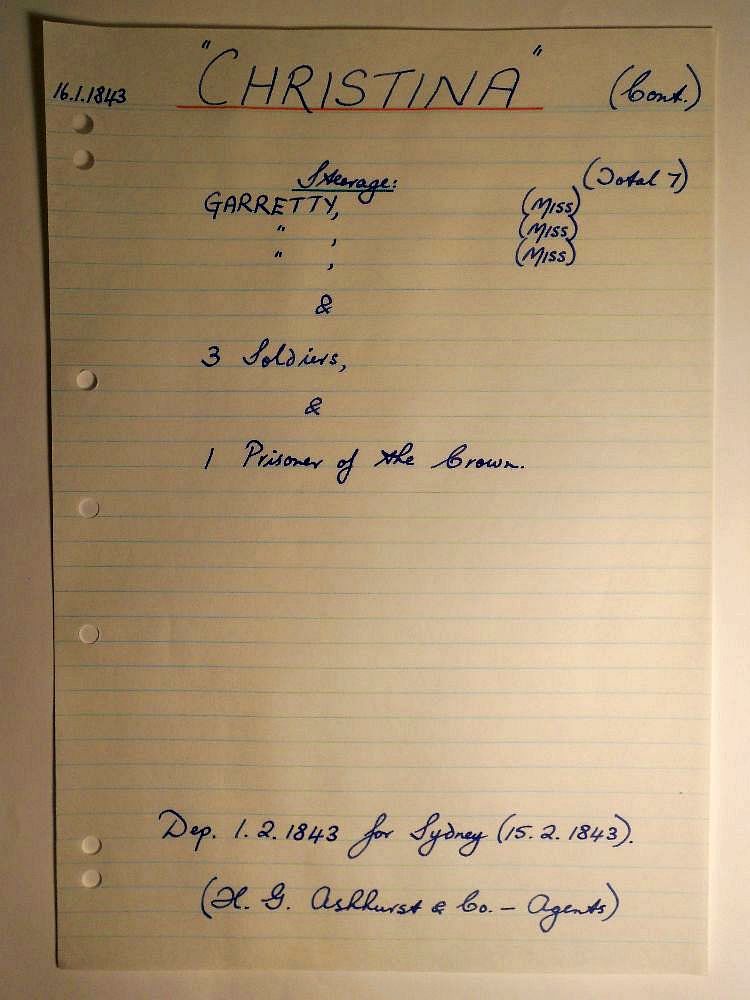 "CHRISTINA"
16.1.1843
(Cont.)
Steerage:
(Total 7)
GARRETTY, (MISS)
" , (MISS)
" , (MISS)
&
3 Soldiers,
&
1 Prisoner of the Crown.
Dep. 1.2.1843 for Sydney (15.2.1843).
(H. G. Ashhurst & Co. - Agents)